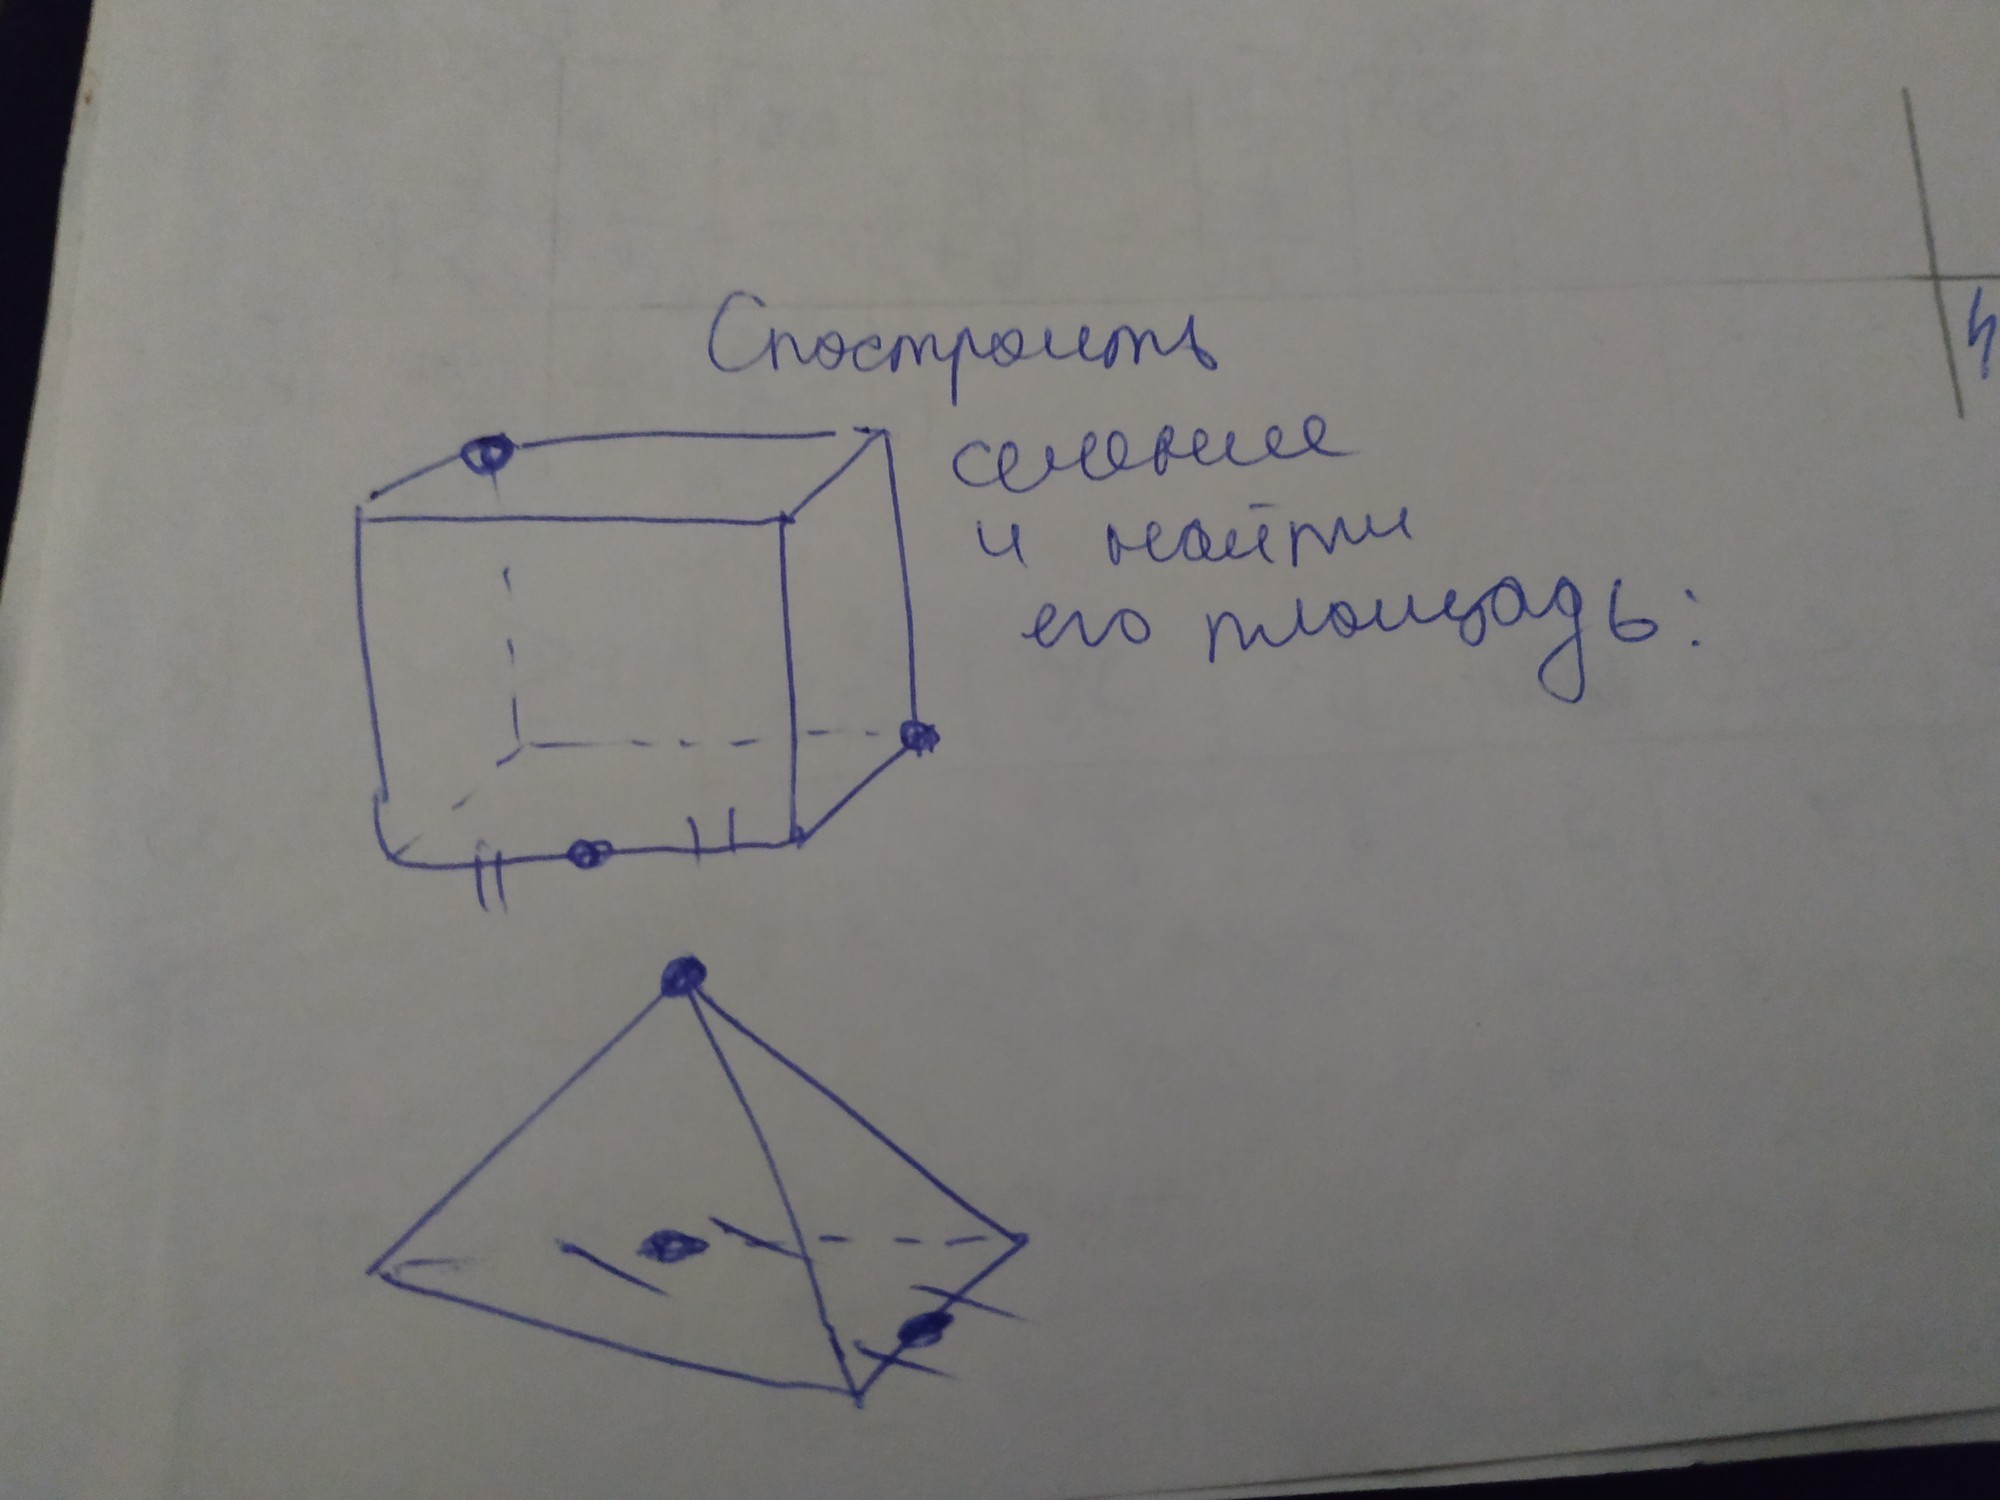 Спостроить
сечение
и найти
его площадь:
ч